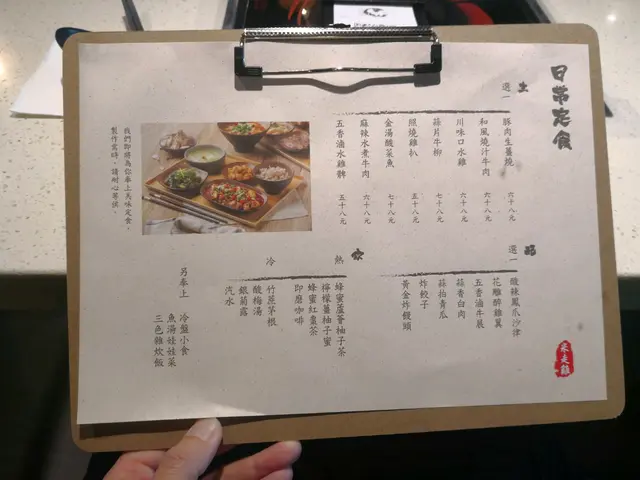 日常定食
主
選一
豚肉生薑燒 六十八元
和風燒汁牛肉 六十八元
川味口水雞 六十八元
蒜片牛柳 七十八元
照燒雞扒 五十八元
金湯酸菜魚 七十八元
麻辣水煮牛肉 六十八元
五香滷水雞髀 五十八元
選一
酸辣鳳爪沙律
花雕醉雞翼
五香滷牛展
蒜香白肉
蒜拍青瓜
炸餃子
黃金炸饅頭
飲
熱
蜂蜜蘆薈柚子茶
檸檬薑柚子蜜
蜂蜜紅棗茶
即磨咖啡
冷
竹蔗茅根
酸梅湯
銀菊露
汽水
另奉上
冷盤小食
魚湯娃娃菜
三色雜炊飯
我們即將為你奉上美味定食，
製作需時，請耐心等候。
來走雞